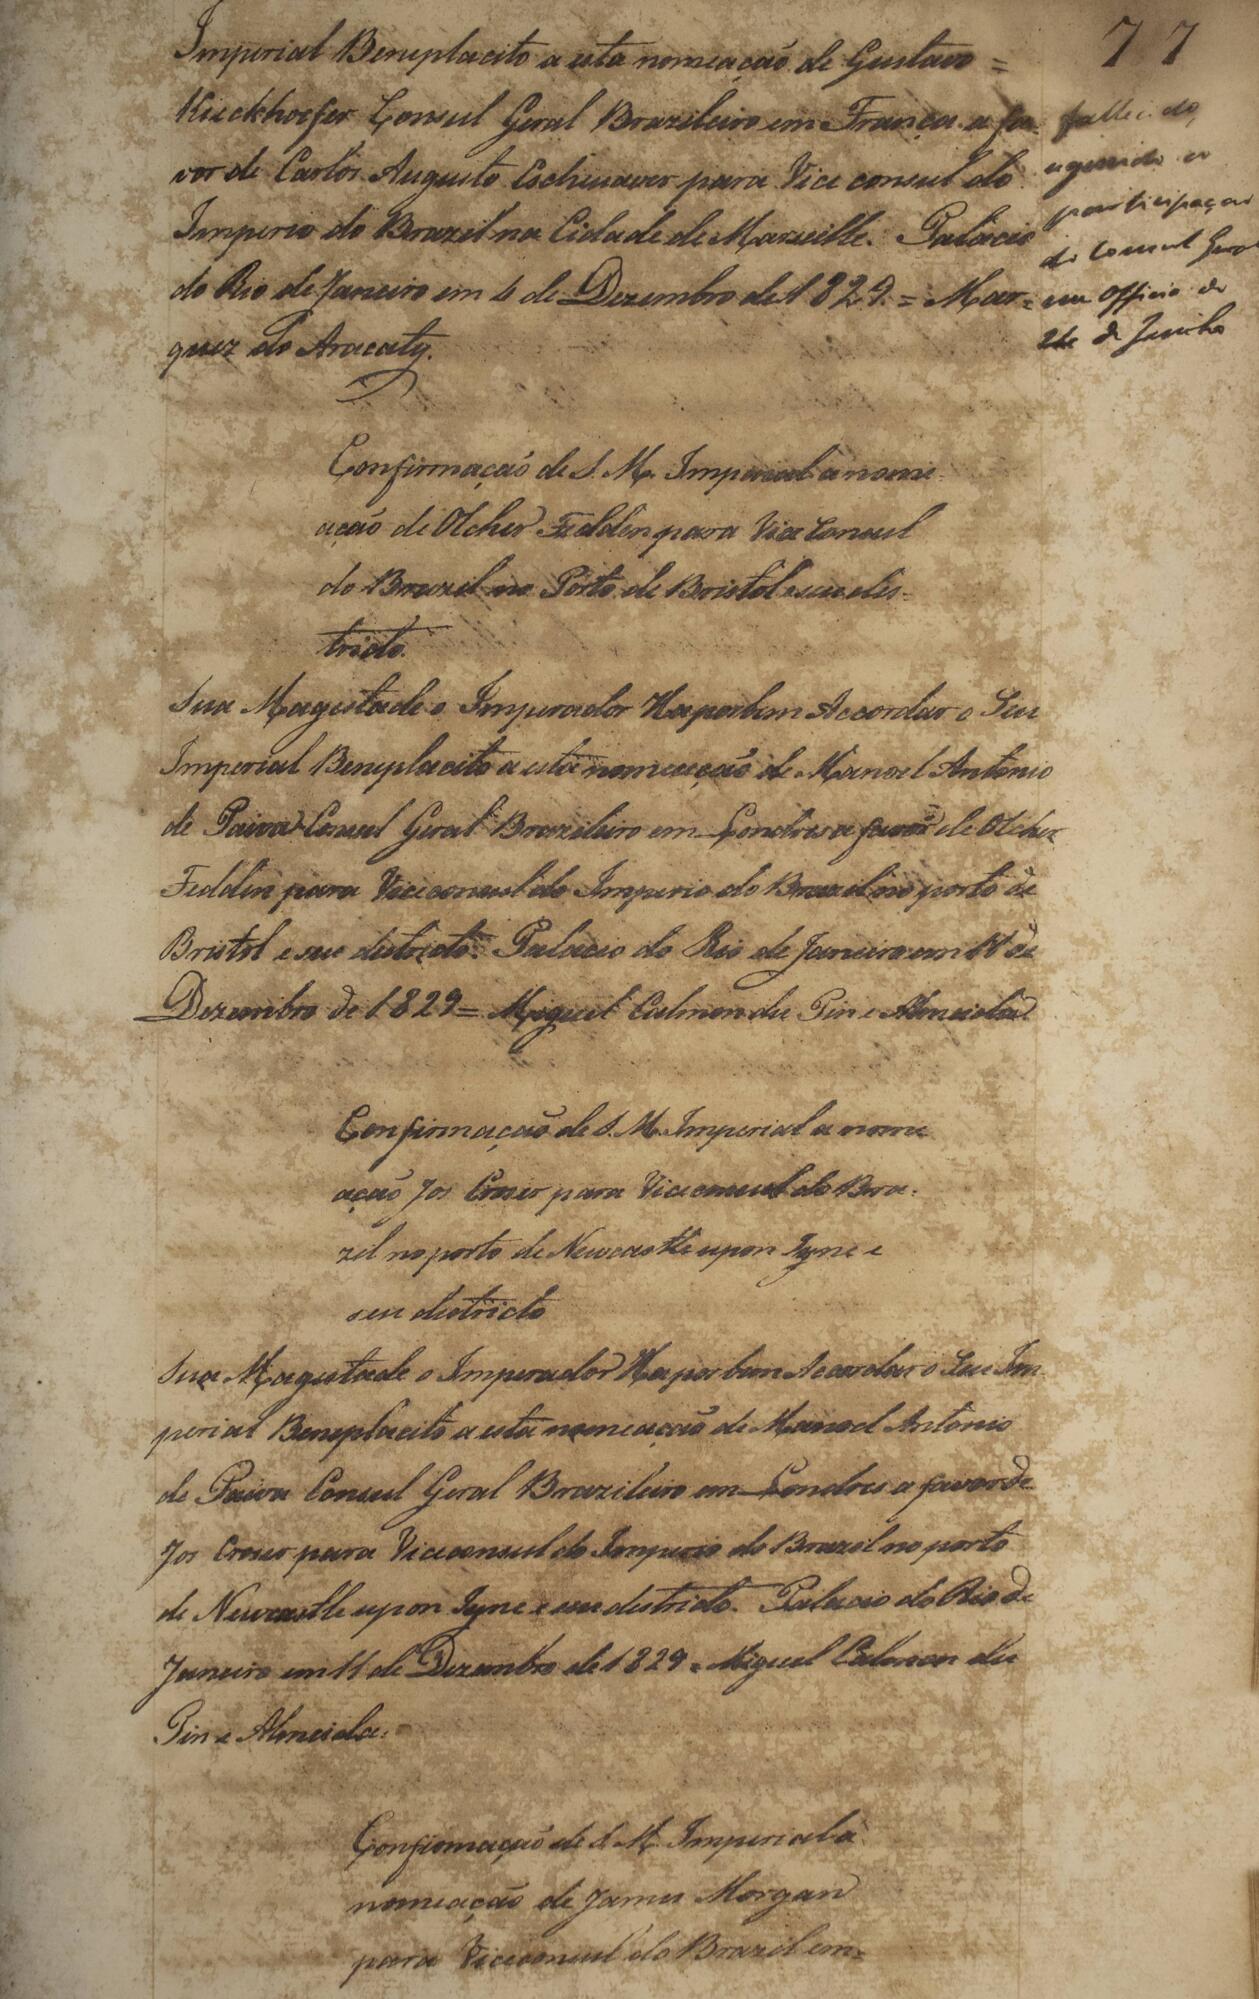 77
Imperial Beneplacito a esta nomeação de Gustavo =
Kieckhoefer Consul Geral Brazileiro em França a fa-
vor de Carlos Augusto Eschenauer para Vice consul do
Imperio do Brazil na Cidade de Marseille. Palacio
do Rio de Janeiro em 4 de Dezembro de 1829. = Mar=
quez do Aracaty.
fallecido,
segundo a
participaçao
do Consul Geral
em Officio de
de Junho
Confirmação de S. M. Imperial a nome-
ação de Olcher Feddin para Vice Consul
do Brazil no Porto de Bristol e seu dis-
tricto.
Sua Magestade o Imperador Ha por bem Accordar o Seu
Imperial Beneplacito a esta nomeação de Manoel Antonio
de Paiva Consul Geral Brazileiro em Londres a favor de Olcher
Feddin para Viceconsul do Imperio do Brazil no porto de
Bristol e seu districto. Palacio do Rio de Janeiro em 11 de
Dezembro de 1829 = Miguel Calmon du Pin e Almeida
Confirmação de S. M. Imperial a nome
ação Jos Croser para Viceconsul do Bra-
zil no porto de Newcastle upon Tyne e
seu districto
Sua Magestade o Imperador Ha por bem Accordar o Seu Im
perial Beneplacito a esta nomeação de Manoel Antonio
de Paiva Consul Geral Brazileiro em Londres a favor de
Jos Croser para Viceconsul do Imperio do Brazil no porto
de Newcastle upon Tyne e seu destricto. Palacio do Rio de
Janeiro em 11 de Dezembro de 1829 = Miguel Calmon du
Pin e Almeida.
Confirmação de S. M. Imperial a
nomeação de James Morgan
para Viceconsul do Brazil em=